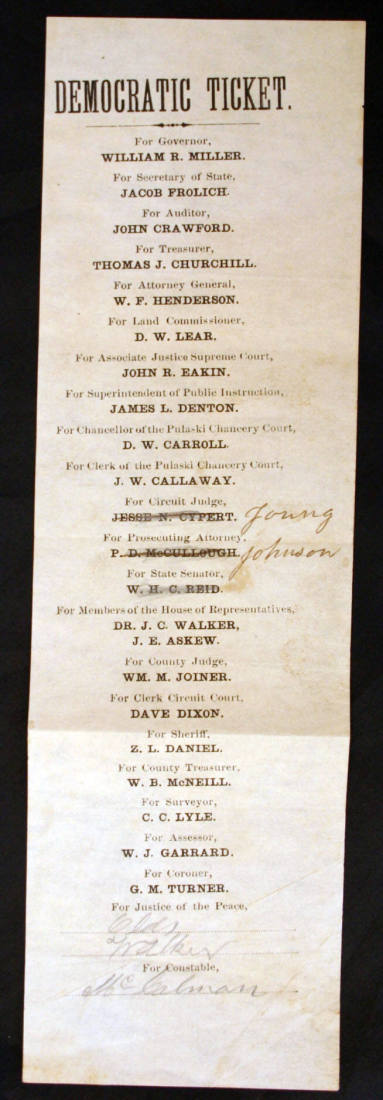 DEMOCRATIC TICKET.
For Governor,
WILLIAM R. MILLER.
For Secretary of State,
JACOB FROLICH.
For Auditor,
JOHN CRAWFORD.
For Treasurer,
THOMAS J. CHURCHILL.
For Attorney General,
W. F. HENDERSON.
For Land Commissioner,
D. W. LEAR.
For Associate Justice Supreme Court,
JOHN R. EAKIN.
For Superintendent of Public Instruction,
JAMES L. DENTON.
For Chancellor of the Pulaski Chancery Court,
D. W. CARROLL.
For Clerk of the Pulaski Chancery Court,
J. W. CALLAWAY.
For Circuit Judge,
JESSE N. CYPERT. Young
For Prosecuting Attorney,
P. D. McCULLOUGH. Johnson
For State Senator,
W. H. C. REID.
For Members of the House of Representatives,
DR. J. C. WALKER,
J. E. ASKEW.
For County Judge,
WM. M. JOINER.
For Clerk Circuit Court,
DAVE DIXON.
For Sheriff,
Z. L. DANIEL.
For County Treasurer,
W. B. McNEILL.
For Surveyor,
C. C. LYLE.
For Assessor,
W. J. GARRARD.
For Coroner,
G. M. TURNER.
For Justice of the Peace,
Walker
For Constable,
McCalman